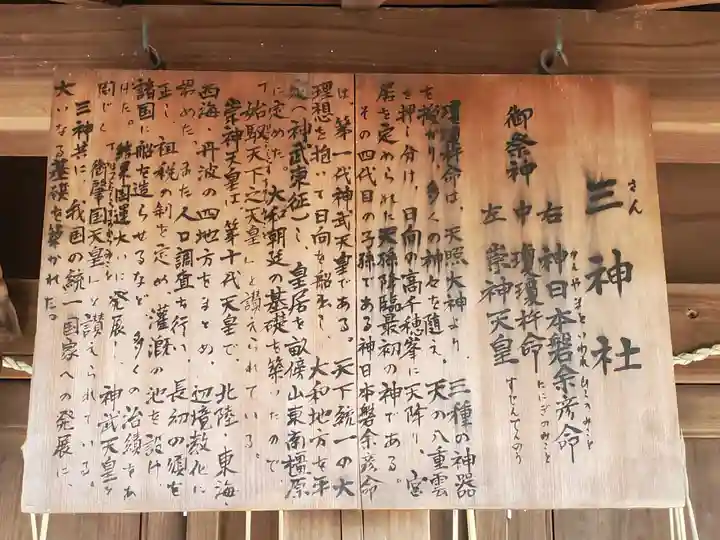 三神社
さん
御祭神
右 神日本磐余彦命
かんやまといわれひこのみこと
中 瓊瓊杵命
ににぎのみこと
左 崇神天皇
すじんてんのう
瓊瓊杵命は、天照大神より、三種の神器
を授かり、多くの神々を随え、天の八重雲
を押し分け、日向の高千穂峯に天降り、宮
居を定められた天孫降臨最初の神である。
その四代目の子孫である神日本磐余彦命
は、第一代神武天皇である。天下統一の大
理想を抱いて日向を船出し、大和地方を平
定へ神武東征)し、皇居を畝傍山東南橿原
に定めた。大和朝廷の基礎を築いたので、
始馭天下之天皇」と讃えられている。
崇神天皇は、第十代天皇で、北陸・東海・
西海・丹波の四地方をまとめ、辺境教化に
努めた。また人口調査を行い、長幼の順を
正し、租税の制を定め、灌漑の池を設け、
諸国に船を造らせるなど、多くの治績をあ
げた。結果国運大いに発展し、神武天皇と
同じく
御肇国天皇」と讃えられている。
三神共に、我国の統一国家への発展に、
大いなる基礎を築かれた。